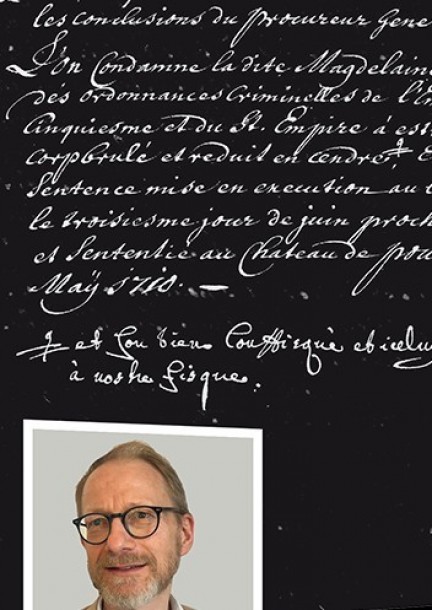 les conclusions du procureur gene
L'on Condamne la dite Magdelain
des ordonnances Criminelles de l'En
Cinquiesme et du St. Empire á est
corp brulé et reduit en cendre,
Sentence mise en execution au
le troisiesme jour de juin proch
et Sententié au Chateau de pou
Maÿ 1710. —
et son bien Confisque et icelu
à nostre fisque.